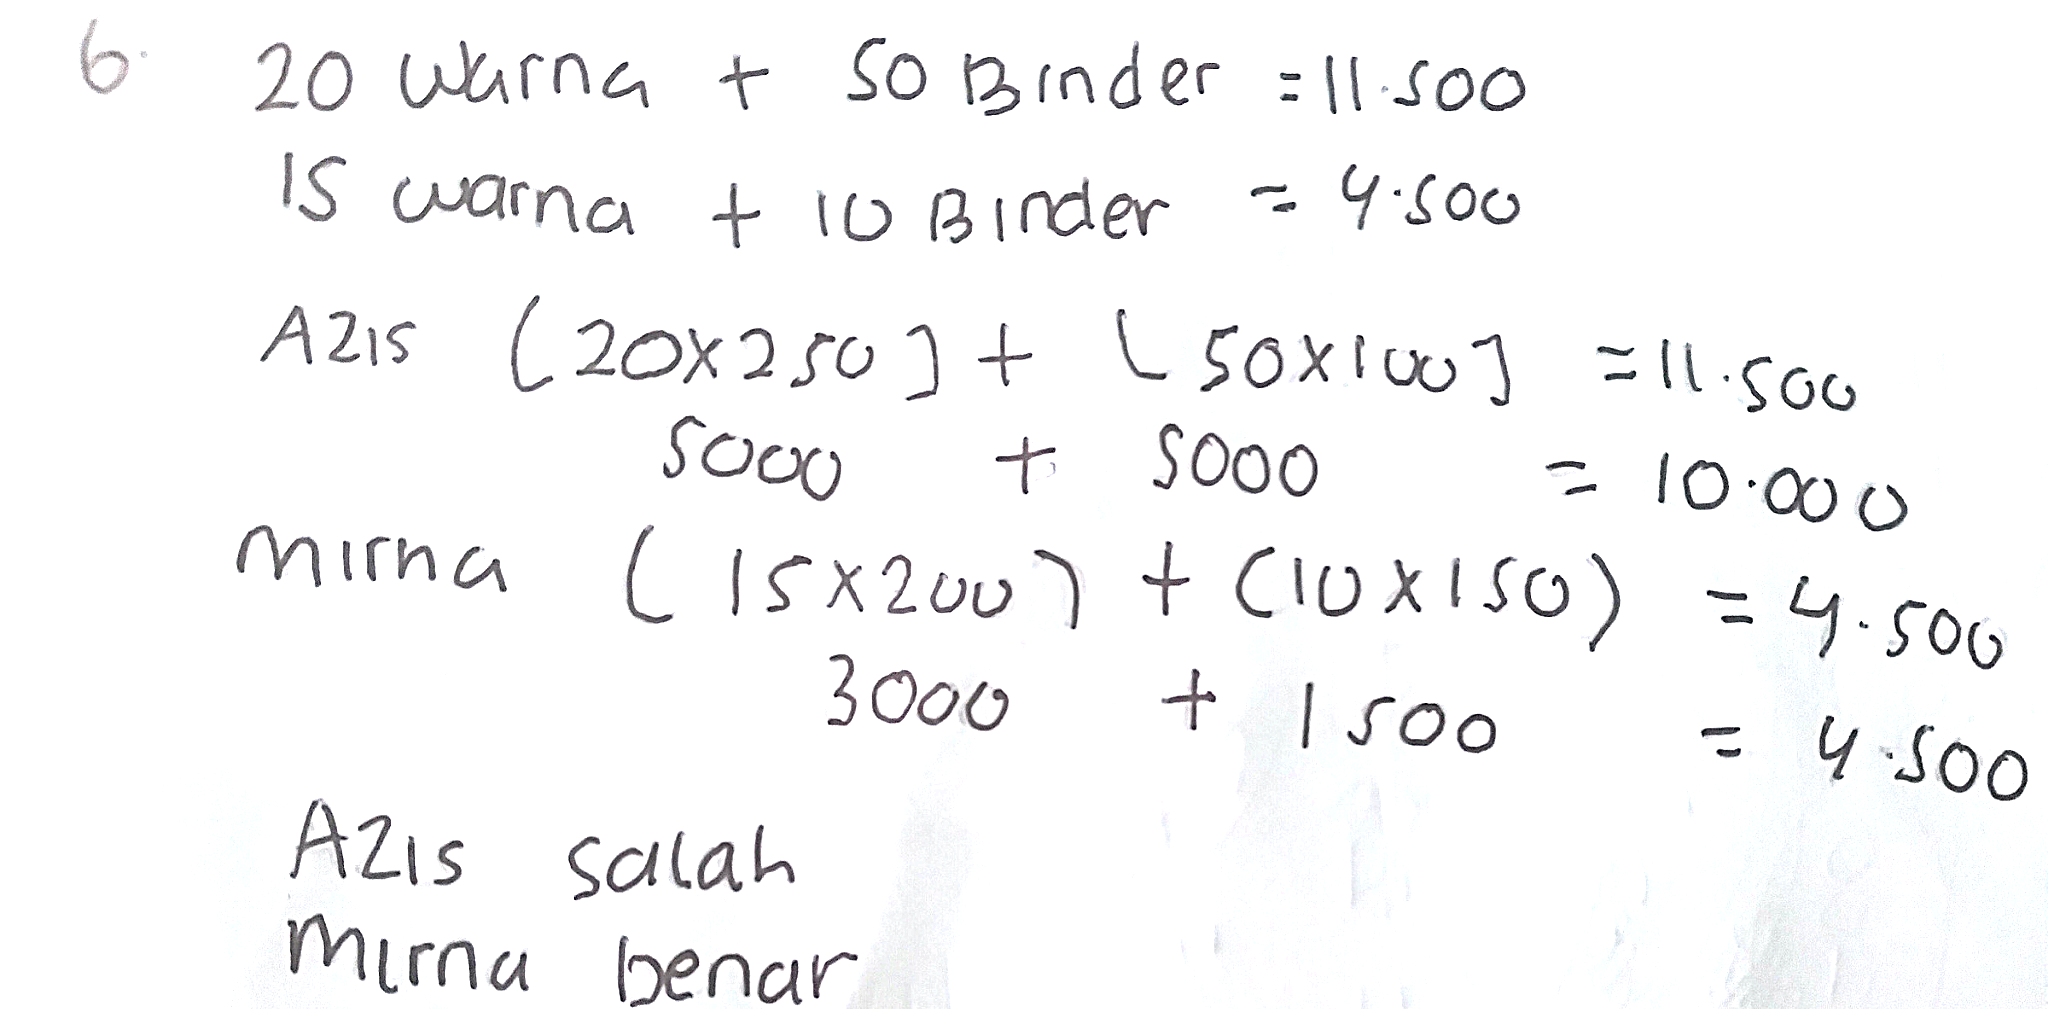 6. 20 Warna + 50 Binder = 11.500
15 warna + 10 Binder = 4.500
Azis (20x250] + (50x100] = 11.500
5000 + 5000 = 10.000
mirna (15x200) + (10x150) = 4.500
3000 + 1500 = 4.500
Azis salah
Mirna benar